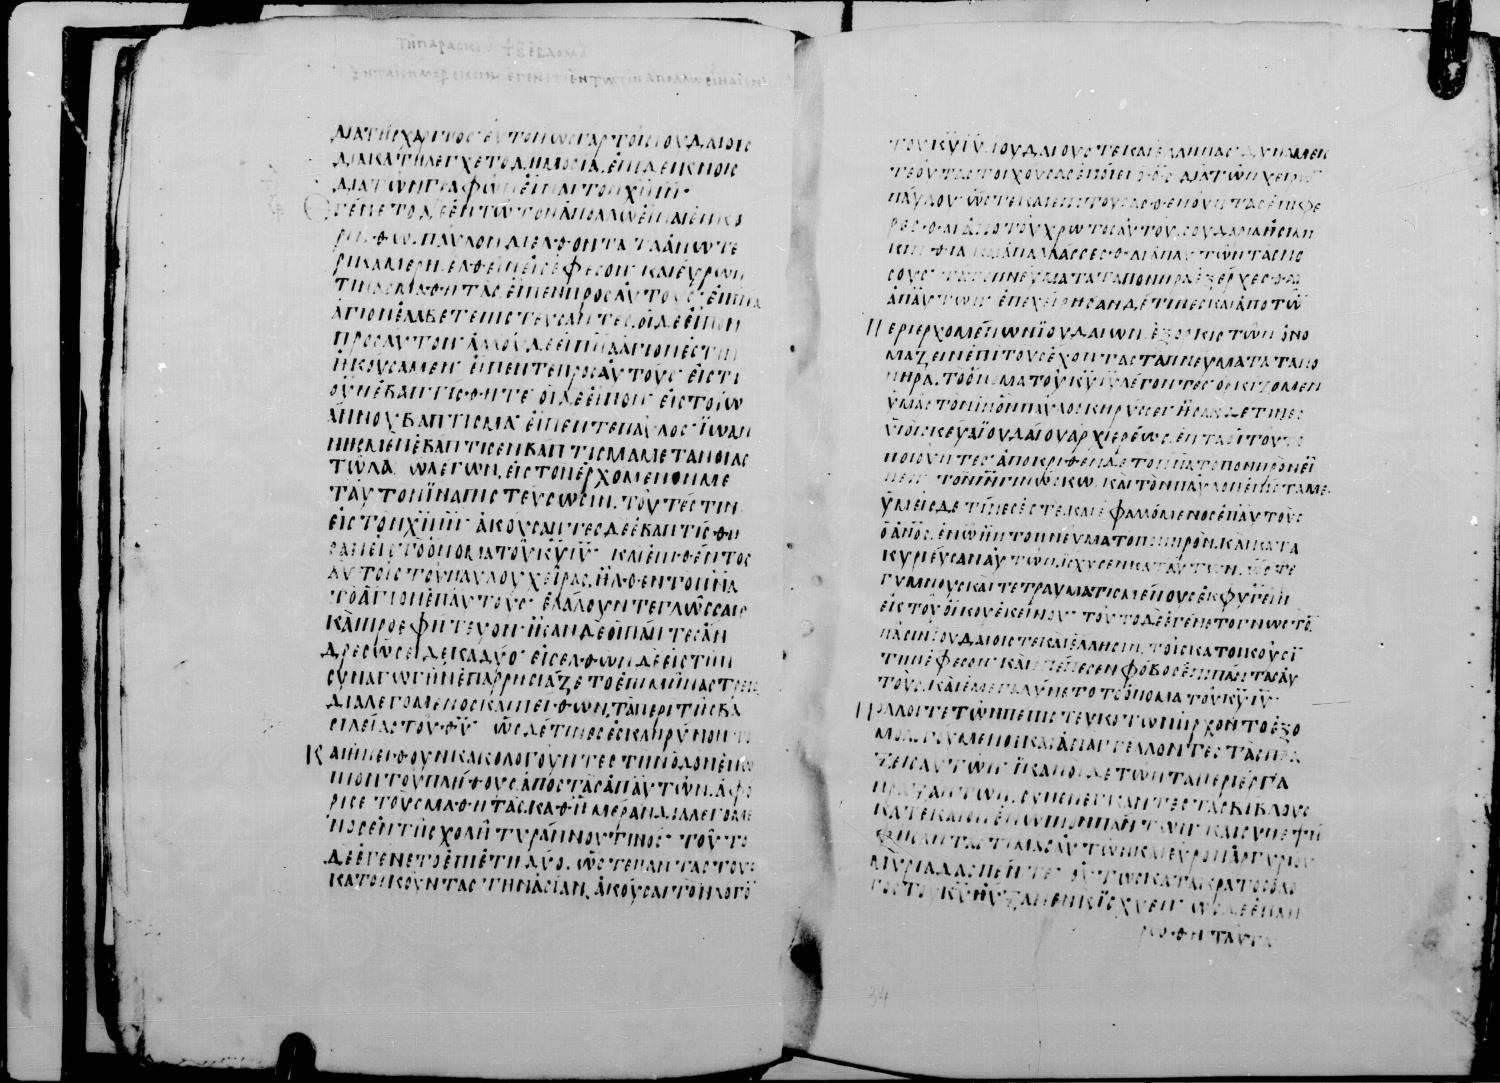 τη παρασκευη
εγενετο εν τω τον απολλω ειναι εν
δια τησ χαριτοσ ευτονωσ γαρ τοισ ιουδαιοισ
διακατηλεγχετο δημοσια επιδεικνυσ
δια των γραφων ειναι τον χν ιν
Εγενετο δε εν τω τον απολλω ειναι εν κο
ρινθω παυλον διελθοντα τα ανωτε
ρικα μερη ελθειν εισ εφεσον και ευρων
τινασ μαθητασ ειπεν προσ αυτουσ ει πνα
αγιον ελαβετε πιστευσαντεσ οι δε ειπον
προσ αυτον αλλ ουδε ει πνα αγιον εστιν
ηκουσαμεν ειπεν τε προσ αυτουσ εισ τι
ουν εβαπτισθητε οι δε ειπον εισ το ιω
αννου βαπτισμα ειπεν τε παυλοσ ιωαν
νησ μεν εβαπτισεν βαπτισμα μετανοιασ
τω λαω λεγων εισ τον ερχομενον με
τ αυτον ινα πιστευσωσιν τουτεστιν
εισ τον χν ιν ακουσαντεσ δε εβαπτισθη
σαν εισ το ονομα του κυ ιυ και επιθεντοσ
αυτοισ του παυλου χειρασ ηλθεν το πνα
το αγιον επ αυτουσ ελαλουν τε γλωσσαισ
και προεφητευον ησαν δε οι παντεσ αν
δρεσ ωσει δεκαδυο εισελθων δε εισ την
συναγωγην επαρρησιαζετο επι μηνασ τρεισ
διαλεγομενοσ και πειθων τα περι τησ βα
σιλειασ του θυ ωσ δε τινεσ εσκληρυνοντο
Και ηπειθουν κακολογουντεσ την οδον ενω
πιον του πληθουσ αποστασ απ αυτων αφω
ρισε τουσ μαθητασ καθ ημεραν διαλεγομε
νοσ εν τη σχολη τυραννου τινοσ τουτο
δε εγενετο επι ετη δυο ωστε παντασ τουσ
κατοικουντασ την ασιαν ακουσαι τον λογο
του κυ ιυ ιουδαιουσ τε και ελληνασ δυναμεισ
τε ου τασ τυχουσασ εποιει ο θσ δια των χειρω
παυλου ωστε και επι τουσ ασθενουντασ επιφε
ρεσθαι απο του χρωτοσ αυτου σουδαρια η σιμι
κινθια και απαλλασσεσθαι απ αυτων τασ νο
σουσ τα τε πνευματα τα πονηρα εξερχεσθαι
απ αυτων επεχειρησαν δε τινεσ και απο τω
Περιερχομενων ιουδαιων εξορκιστων ονο
μαζειν επι τουσ εχοντασ τα πνευματα τα πο
νηρα το ονομα του κυ ιυ λεγοντεσ ορκιζομεν
υμασ τον ιν ον παυλοσ κηρυσσει ησαν δε τινεσ
υιοι σκευα ιουδαιου αρχιερεωσ επτα οι τουτο
ποιουντεσ αποκριθεν δε το πνα το πονηρον ει
πεν τον ιν γινωσκω και τον παυλον επισταμε
υμεισ δε τινεσ εστε και εφαλομενοσ επ αυτουσ
ο ανοσ εν ω ην το πνευμα το πονηρον και κατα
κυριευσαν αυτων ισχυσεν κατ αυτων ωστε
γυμνουσ και τετραυματισμενουσ εκφυγειν
εκ του οικου εκεινου τουτο δε εγενετο γνωστο
πασιν ιουδαιοισ τε και ελλησιν τοισ κατοικουσι
την εφεσον και επεπεσεν φοβοσ επι παντασ αυ
τουσ και εμεγαλυνετο το ονομα του κυ ιυ
Πολλοι τε των πεπιστευκοτων ηρχοντο εξο
μολογουμενοι και αναγγελλοντεσ τασ πρα
ξεισ αυτων ικανοι δε των τα περιεργα
πραξαντων συνενεγκαντεσ τασ βιβλουσ
κατεκαιον ενωπιον παντων και συνεψη
φισαν τασ τιμασ αυτων και ευρον αργυριου
μυριαδασ πεντε ουτωσ κατα κρατοσ ο λο
γοσ του κυ ηυξανεν κ ισχυεν ωσ δε επλη
ρωθη ταυτα
34